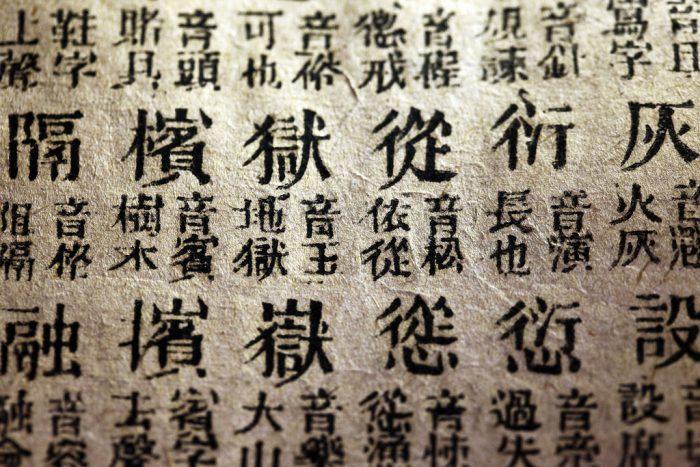 寫字
灰
火灰
設
設席
音針
規諫
衍
音演
長也
愆
過失
從
音松
依從
慫
音悚
可也
獄
音玉
地獄
嶽
音樂
大山
音頭
賭具
檳
音賓
樹木
擯
賓字
去聲
鞋字
上聲
隔
音格
阻隔
融
音容